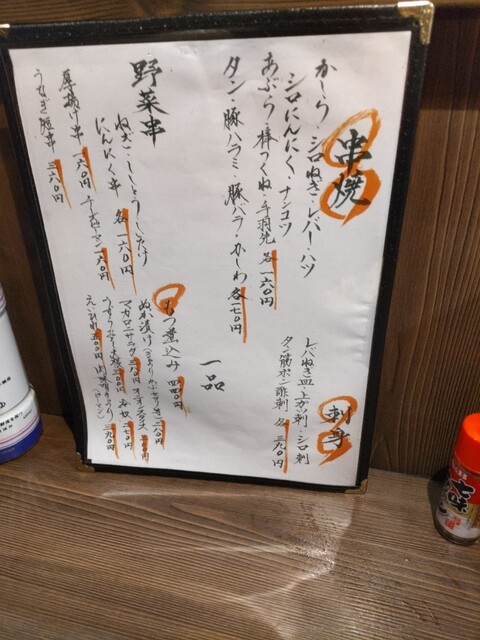 串焼
かしら・シロねぎ・レバー・ハツ
シロにんにく・ナンコツ
あぶら・棒つくね・手羽先 各一六〇円
タン・豚ハラミ・豚バラ・かしわ 各一七〇円
野菜串
ねぎ・ししとう・しいたけ
にんにく串 各一六〇円
厚揚げ串 一六〇円
うなぎ短串 三六〇円
刺身
レバねぎ皿・上ガツ刺・シロ刺
タン筋ポン酢刺 各三九〇円
一品
もつ煮込み 四四〇円
ぬか漬け
マカロニサラダ
えいひれ
三九〇円
七味